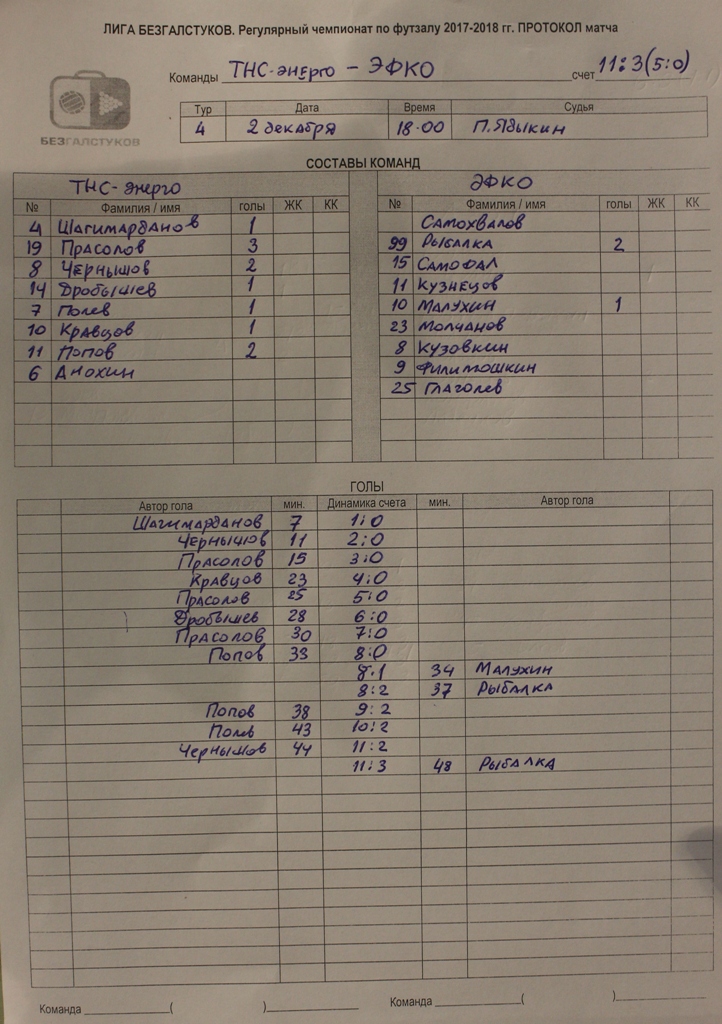 ЛИГА БЕЗГАЛСТУКОВ. Регулярный чемпионат по футзалу 2017-2018 гг. ПРОТОКОЛ матча
Команды ТНС-энерго - ЭФКО счет 11:3 (5:0)
БЕЗГАЛСТУКОВ
Тур Дата Время Судья
4 2 декабря 18-00 П. Ядыкин
СОСТАВЫ КОМАНД
ТНС-энерго ЭФКО
№ Фамилия / имя голы ЖК КК № Фамилия / имя голы ЖК КК
4 Шагимарданов 1 Самохвалов
19 Прасолов 3 99 Рыбалка 2
8 Чернышов 2 15 Самофал
14 Дробышев 1 11 Кузнецов
7 Полев 1 10 Малухин 1
10 Кравцов 1 23 Молчанов
11 Попов 2 8 Кузовкин
6 Анохин 9 Филимошкин
25 Глаголев
ГОЛЫ
Автор гола мин. Динамика счета мин. Автор гола
Шагимарданов 7 1:0
Чернышов 11 2:0
Прасолов 15 3:0
Кравцов 23 4:0
Прасолов 25 5:0
Дробышев 28 6:0
Прасолов 30 7:0
Попов 33 8:0
8:1 34 Малухин
8:2 37 Рыбалка
Попов 38 9:2
Полев 43 10:2
Чернышов 44 11:2
11:3 48 Рыбалка
Команда ( ) Команда ( )